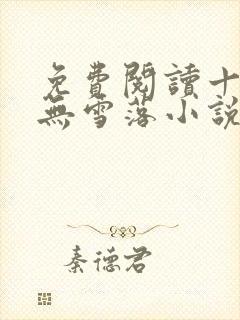 免費閱讀十
無雪落小說
秦德君